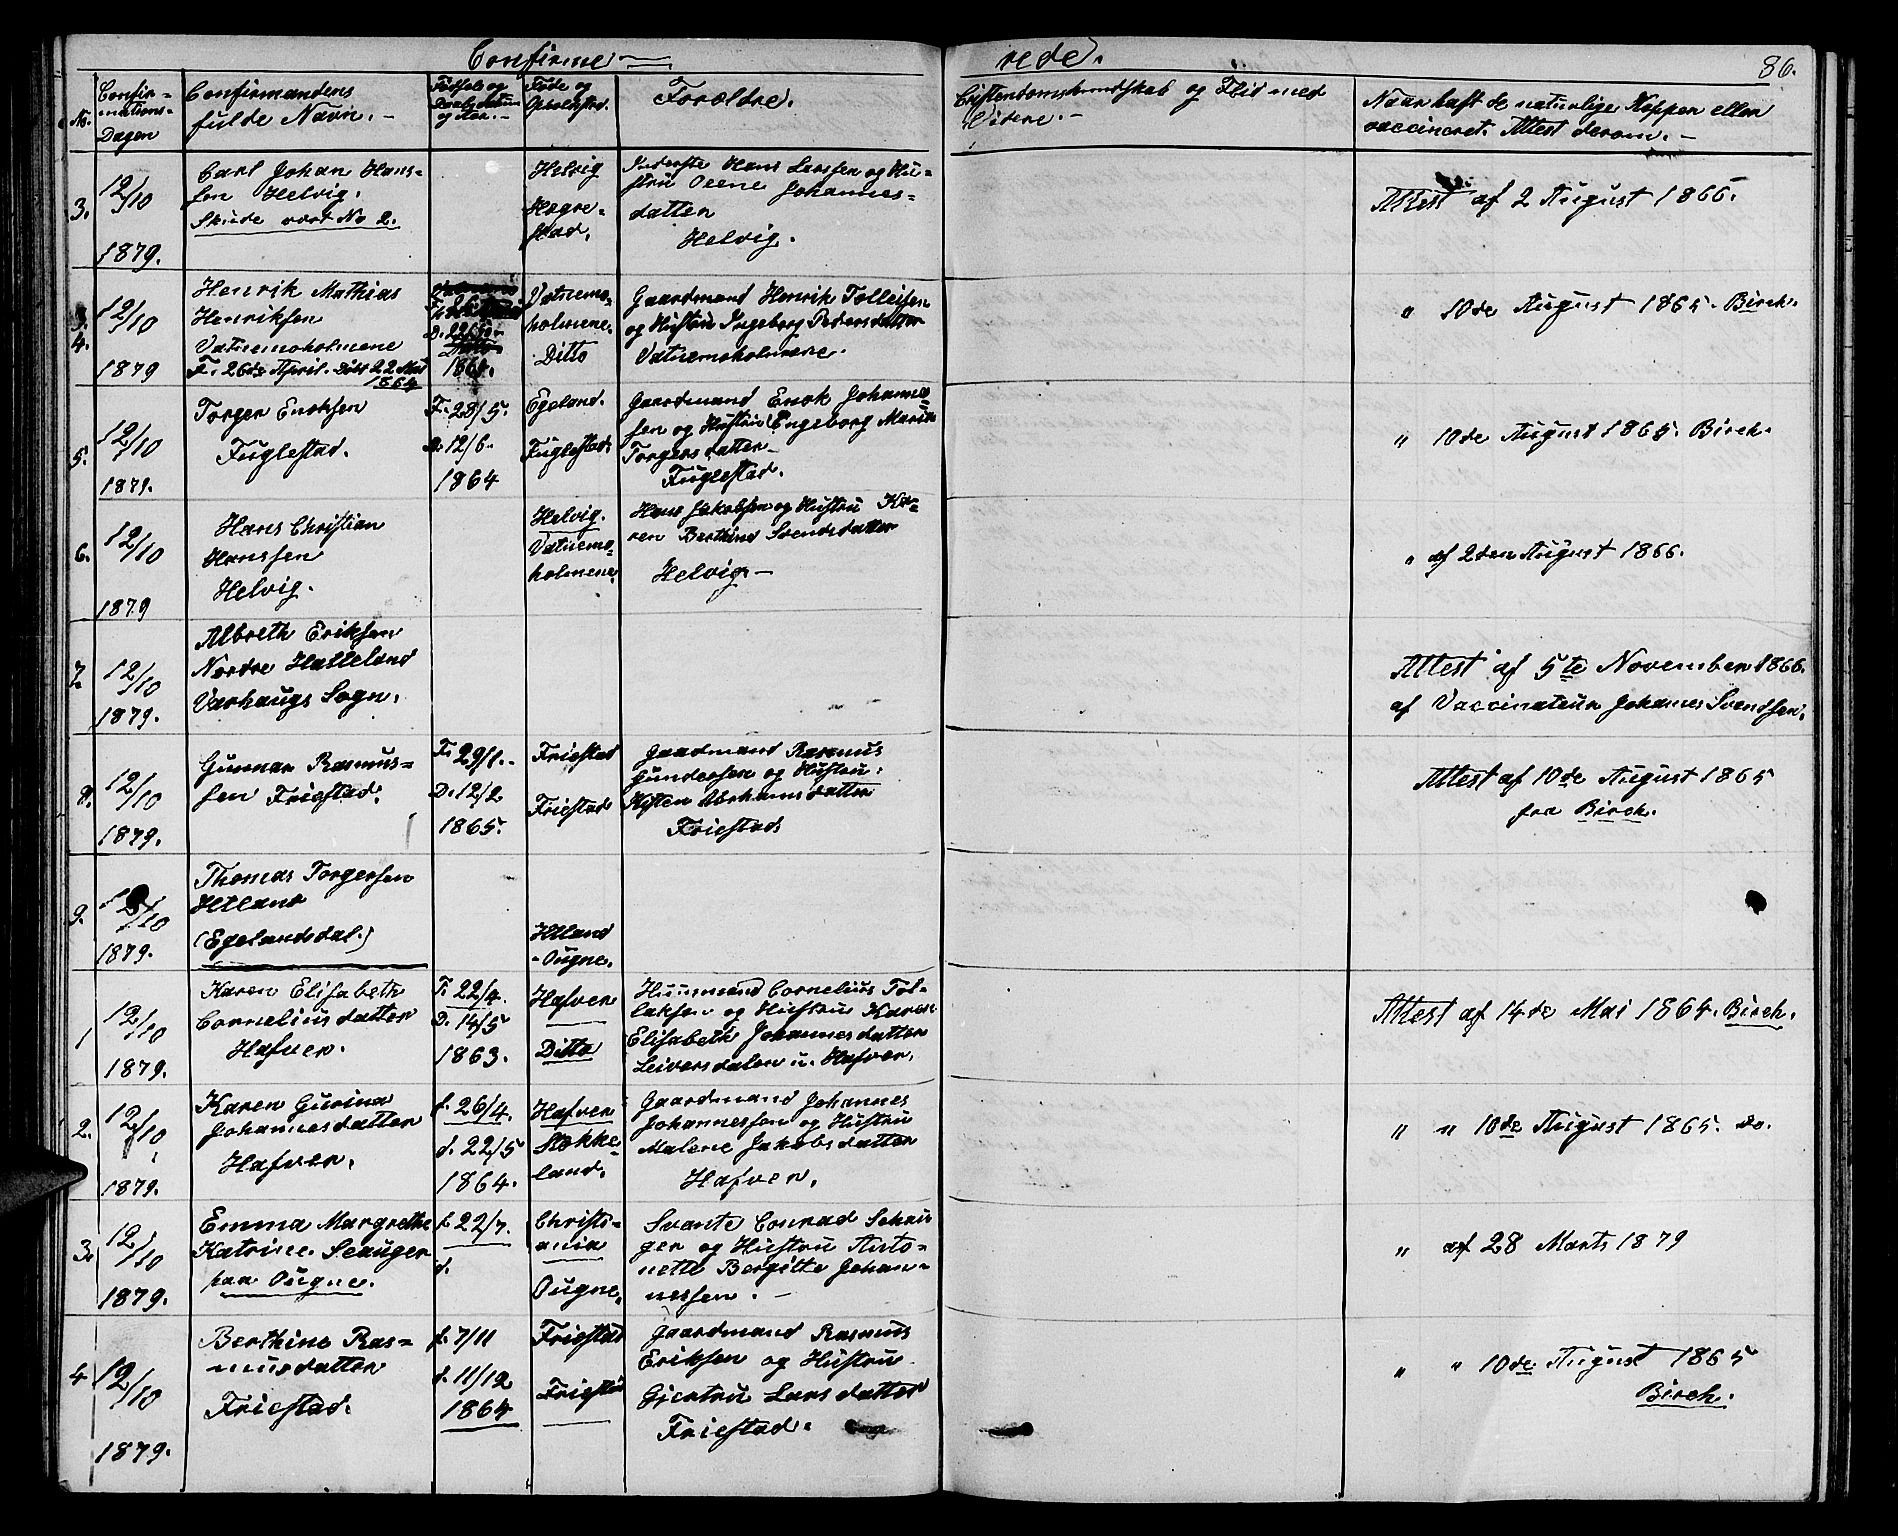 Confirme-
rede.
86.
No.
Confir-
mations-
Dagen
Confirmandens
fulde Navn. -
Fødsels og
Daabsdatum
og Aar. -
Føde og
Opholdsted.
Forældre.
Cristendomskundskab og Flid med
Videre. -
Naar haft de naturlige Kopper eller
vaccineret. Attest derom. -
3.
12/10
1879.
Carl Johan Hans-
sen Helvig.
Skude vært No 2.
Helvig
Høgre-
stad.
Inderste Hans Larssen og Hu-
stru Oeene Johannes-
datter
Helvig.
Attest af 2 August 1866.
4.
12/10
1879
Henrik Mathias
Henriksen
Vatnemoholmene
F. 26de April. Døbt 22 Mai
1864
D. 22/5
1864.
Vatnemo-
holmene.
Ditto
Gaardmand Henrik Tolleifsen
og Hustru Ingeborg Pedersdatter
Vatnemoholmene.
" 10de August 1865. Birch.
5.
12/10
1879.
Torger Enoksen
Fuglestad.
F. 28/5.
D. 12/6.
1864
Egeland.
Fuglestad.
Gaardmand Enok Johannes-
sen og Hustru Engeborg Marie
Torgersdatter
Fuglestad.
" 10de August 1865. Birch.
6.
12/10
1879
Hans Christian
Hanssen
Helvig.
Helvig.
Vatnemo-
holmene.
Hans Jakobsen og Hustru Ka-
ren Berthine Svendsdatter
Helvig. -
" af 2den August 1866.
7.
12/10
1879.
Albreth Eriksen
Nordre Hatteland
Varhaugs Sogn.
Attest af 5te November 1866.
af Vaccinateur Johannes Svendsen.
8.
12/10
1879.
Gunnar Rasmus-
sen Friestad.
F. 29/1.
D. 12/2
1865.
Friestad
Friestad
Gaardmand Rasmus
Gundersen og Hustru
Kisten Abrahamsdatter
Friestad
Attest af 10de August 1865
fra Birch.
9.
12/10
1879.
Thomas Torgersen
Hetland
(Egelandsdal.)
Hetland
- Ougne.
1
12/10
1879.
Karen Elisabeth
Corneliusdatter
Hafver.
F. 22/4.
D. 14/5
1863.
Hafver
Ditto
Huusmand Cornelius Tol-
laksen og Hustru Karen
Elisabeth Johannesdatter
Leiversdalen u. Hafver.
Attest af 14de Mai 1864. Birch.
2.
12/10
1879.
Karen Gurina
Johannesdatter
Hafver.
f. 26/4.
d. 22/5
1864.
Hafver
Stokke-
land.
Gaardmand Johannes
Johannessen og Hustru
Malene Jakobsdatter
Hafver.
" " 10de August 1865. do.
3.
12/10
1879.
Emma Margrethe
Katrine Scauger
paa Ougne.
f. 22/7.
d.
Christi-
ania
Ougne.
Svante Conrad Schau
ger og Hustru Anto-
nette Bergitte Johan-
nessen. -
" af 28 Marts 1879
4
12/10
1879.
Berthine Ras-
musdatter
Friestad.
f. 7/11
d. 11/12
1864
Friestad
Friestad
Gaardmand Rasmus
Eriksen og Hustru
Gjertru Larsdatter
Friestad.
" " 10de August 1865
Birch.